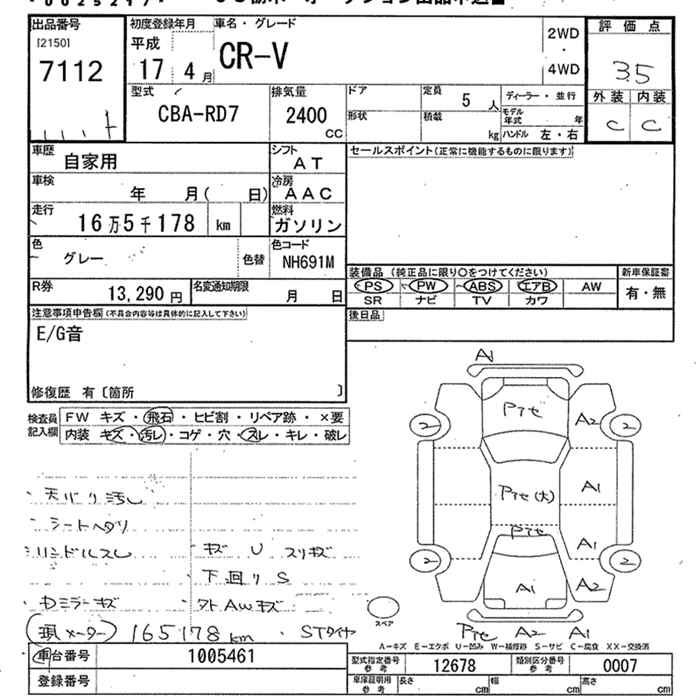 出品番号 初度登録年月 車名・グレード 2WD 評価点
[2150] 平成 CR-V ・ 3.5
7112 17 4月 4WD 外装 内装
型式 排気量 ドア 定員 5人 ディーラー・並行 C C
CBA-RD7 2400 cc 形状 積載 kg モデル年式 年
ハンドル 左・右
車歴 自家用 シフト AT セールスポイント(正常に機能するものに限ります)
車検 年 月( 日) 冷房 AAC
走行 16万5千178 km 燃料 ガソリン
色 グレー 色替 色コード NH691M 装備品(純正品に限り○をつけてください) 新車保証書
R券 13,290円 名変通知期限 月 日 PS PW ABS エアB AW 有・無
SR ナビ TV カワ
注意事項申告欄(不具合内容等は具体的に記入して下さい) 後日品
E/G音
修復歴 有〔箇所 〕
検査員記入欄 FW キズ・飛石・ヒビ割・リペア跡・×要
内装 キズ・汚レ・コゲ・穴・スレ・キレ・破レ
A1
Pテセ A2
2 2
Pテセ(大) A1
Pテセ A1
2 2
A1 A2
Pテセ A2 A1
スペア
・天バリ汚レ
・シートヘタリ
・ハンドルスレ ・キズ U スリキズ
下回りS
・Dミラーキズ ・アトAWキズ
(現メーター) 165178km ・STタイヤ
A-キズ E-エクボ U-凹み W-補修跡 S-サビ C-腐食 XX-交換済
車台番号 1005461 型式指定番号 参考 12678 類別区分番号 参考 0007
登録番号 車庫証明用 参考 長さ cm 幅 cm 高さ cm